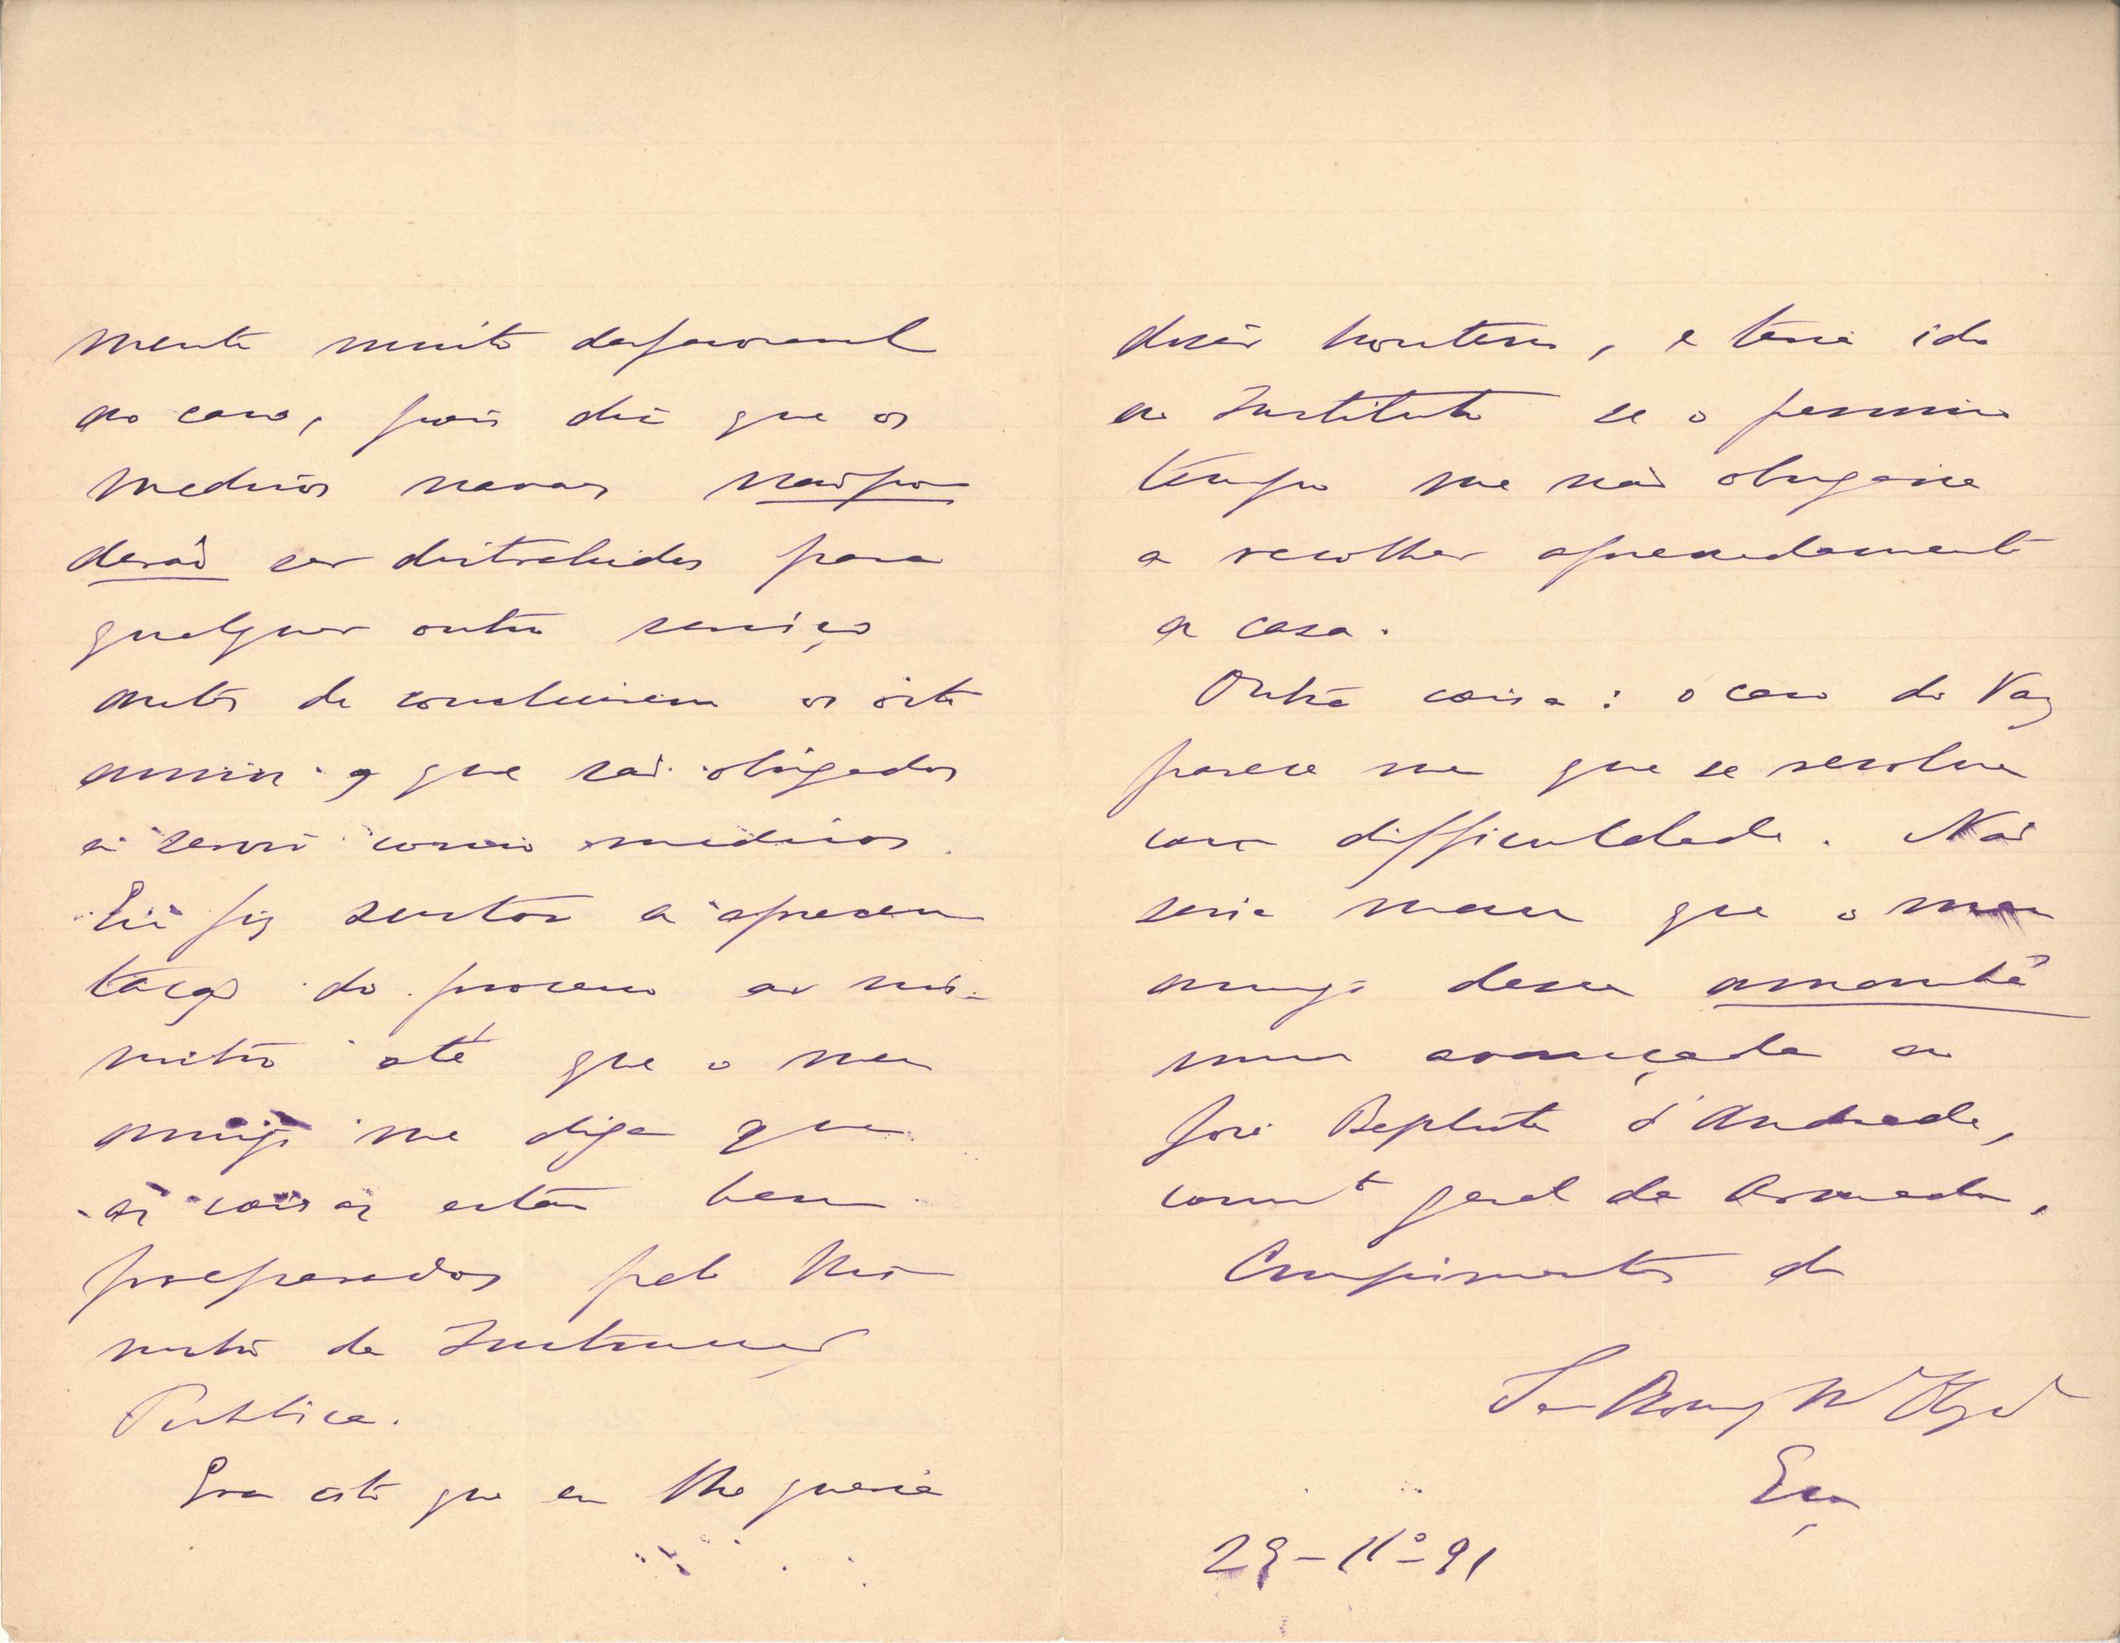 mente muito desfavoravel
ao caso, pois diz que os
medicos navaes não po
derão ser distrahidos para
qualquer outro serviço
antes de concluirem os oito
annos que são obrigados
a servir como medicos.
Eu fiz sustar a apresen
tação do processo ao mi-
nistro até que o meu
amigo me diga que
as coisas estão bem
preparadas pelo Mi
nistro da Instrucção
Publica.
Era isto que eu lhe queria
dizer hontem, e teria ido
ao Instituto se o pessimo
tempo me não obrigasse
a recolher apressadamente
a casa.
Outra coisa: o caso do Vaz
parece me que se resolve
com difficuldade. Não
seria mau que o meu
amigo desse amanhã
uma avançada ao
José Baptista d'Andrade,
comm.te geral da Armada,
Cumprimentos do
Seu
Eça
29-11º-91